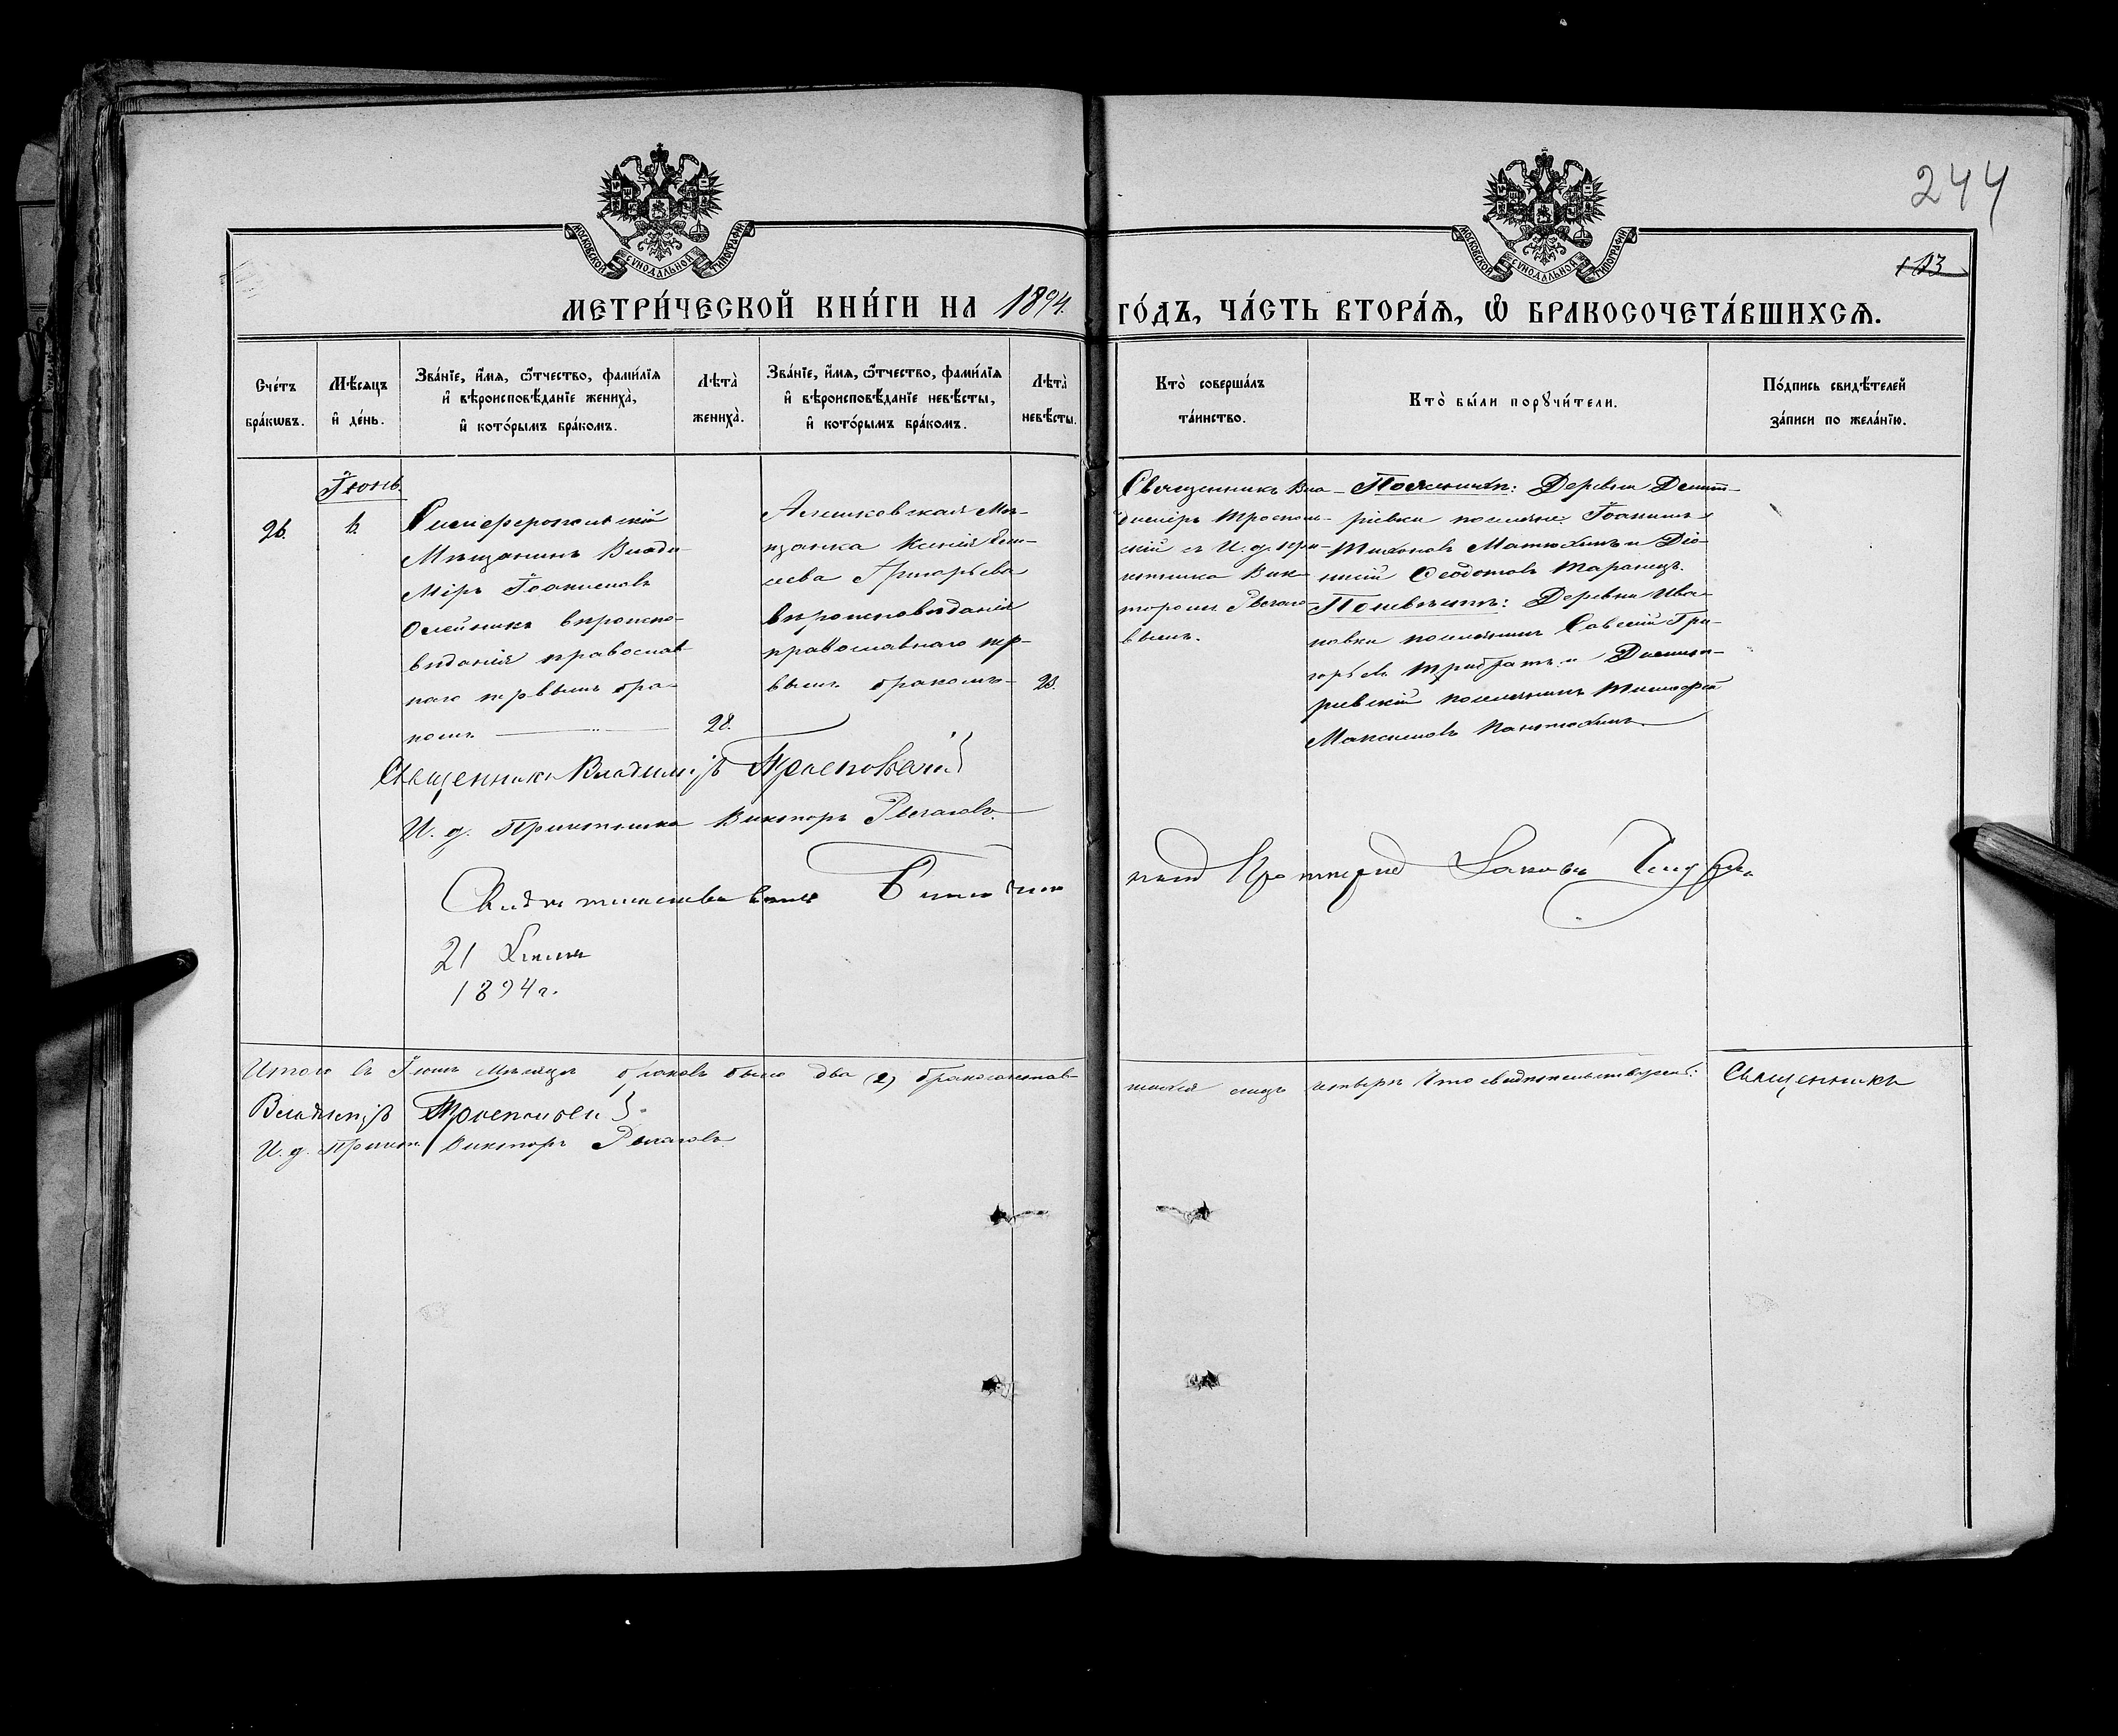 244
113
МОСКОВСКОЙ СѴНОДАЛЬНОЙ ТИПОГРАФІИ
МОСКОВСКОЙ СѴНОДАЛЬНОЙ ТИПОГРАФІИ
МЕТРИ́ЧЕСКОЙ КНИ́ГИ НА 1894. ГО́ДЪ, ЧА́СТЬ ВТОРА́Ѧ, Ѿ БРАКОСОЧЕТА́ВШИХСѦ.
Сче́тъ бра́кѡвъ.
Мѣ́сяцъ и҆ де́нь.
Зва́нїе, и҆́мѧ, ѻ҆́тчество, фами́лїѧ
и҆ вѣроисповѣ́данїе жениха̀,
и҆ кото́рымъ бра́комъ.
Лѣта̀ жениха̀.
Зва́нїе, и҆́мѧ, ѻ҆́тчество, фами́лїѧ
и҆ вѣроисповѣ́данїе невѣ́сты,
и҆ кото́рымъ бра́комъ.
Лѣта̀ невѣ́сты.
Кто̀ соверша́лъ
та́инство.
Кто̀ бы́ли порꙋчи́тели.
По́дпись свидѣ́телей
за́писи по жела́нїю.
Іюнь.
26.
Симферопольскій
Мѣщанинъ Влади-
міръ Іоакимовъ
Олейникъ вѣроиспо-
вѣданія православ
наго первымъ бра-
комъ
28.
Алешковская Мѣ-
щанка Ксенія
Григорьева
вѣроисповѣданія
православнаго пер-
вымъ бракомъ
23.
Священникъ Вла-
диміръ Троепол-
скій съ И. д. пса-
ломщика Вик-
торомъ
вымъ.
По женихѣ: Деревни Дмит-
ріевки поселяне: Іоаннъ
Тихоновъ Матюхинъ и Діо-
нисій Ѳеодотовъ Таранецъ.
По невѣстѣ: Деревни Ива-
новки поселянинъ Савелій Гри-
горьевъ и Дмит-
ріевскій поселянинъ Тимофей
Максимовъ
Священникъ Владиміръ
И. д. Викторъ
Свидѣтельствовалъ
Протоіерей
21 Іюля
1894 г.
Итого въ Іюнѣ мѣсяцѣ браковъ было два (2) бракосочетав-
шихся лицъ четыре что свидѣтельствуемъ: Священникъ
Владиміръ
И. д. Викторъ